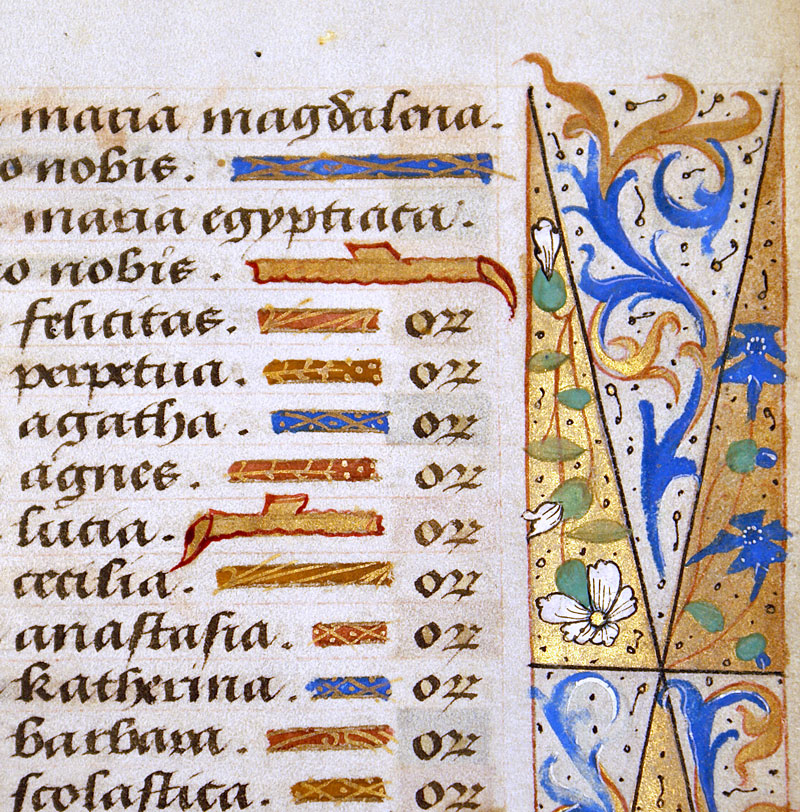 maria magdalena.
o nobis.
maria egyptiaca.
o nobis.
felicitas. or
perpetua. or
agatha. or
agnes. or
lucia. or
cecilia. or
anastasia. or
katherina. or
barbara. or
scolastica. or